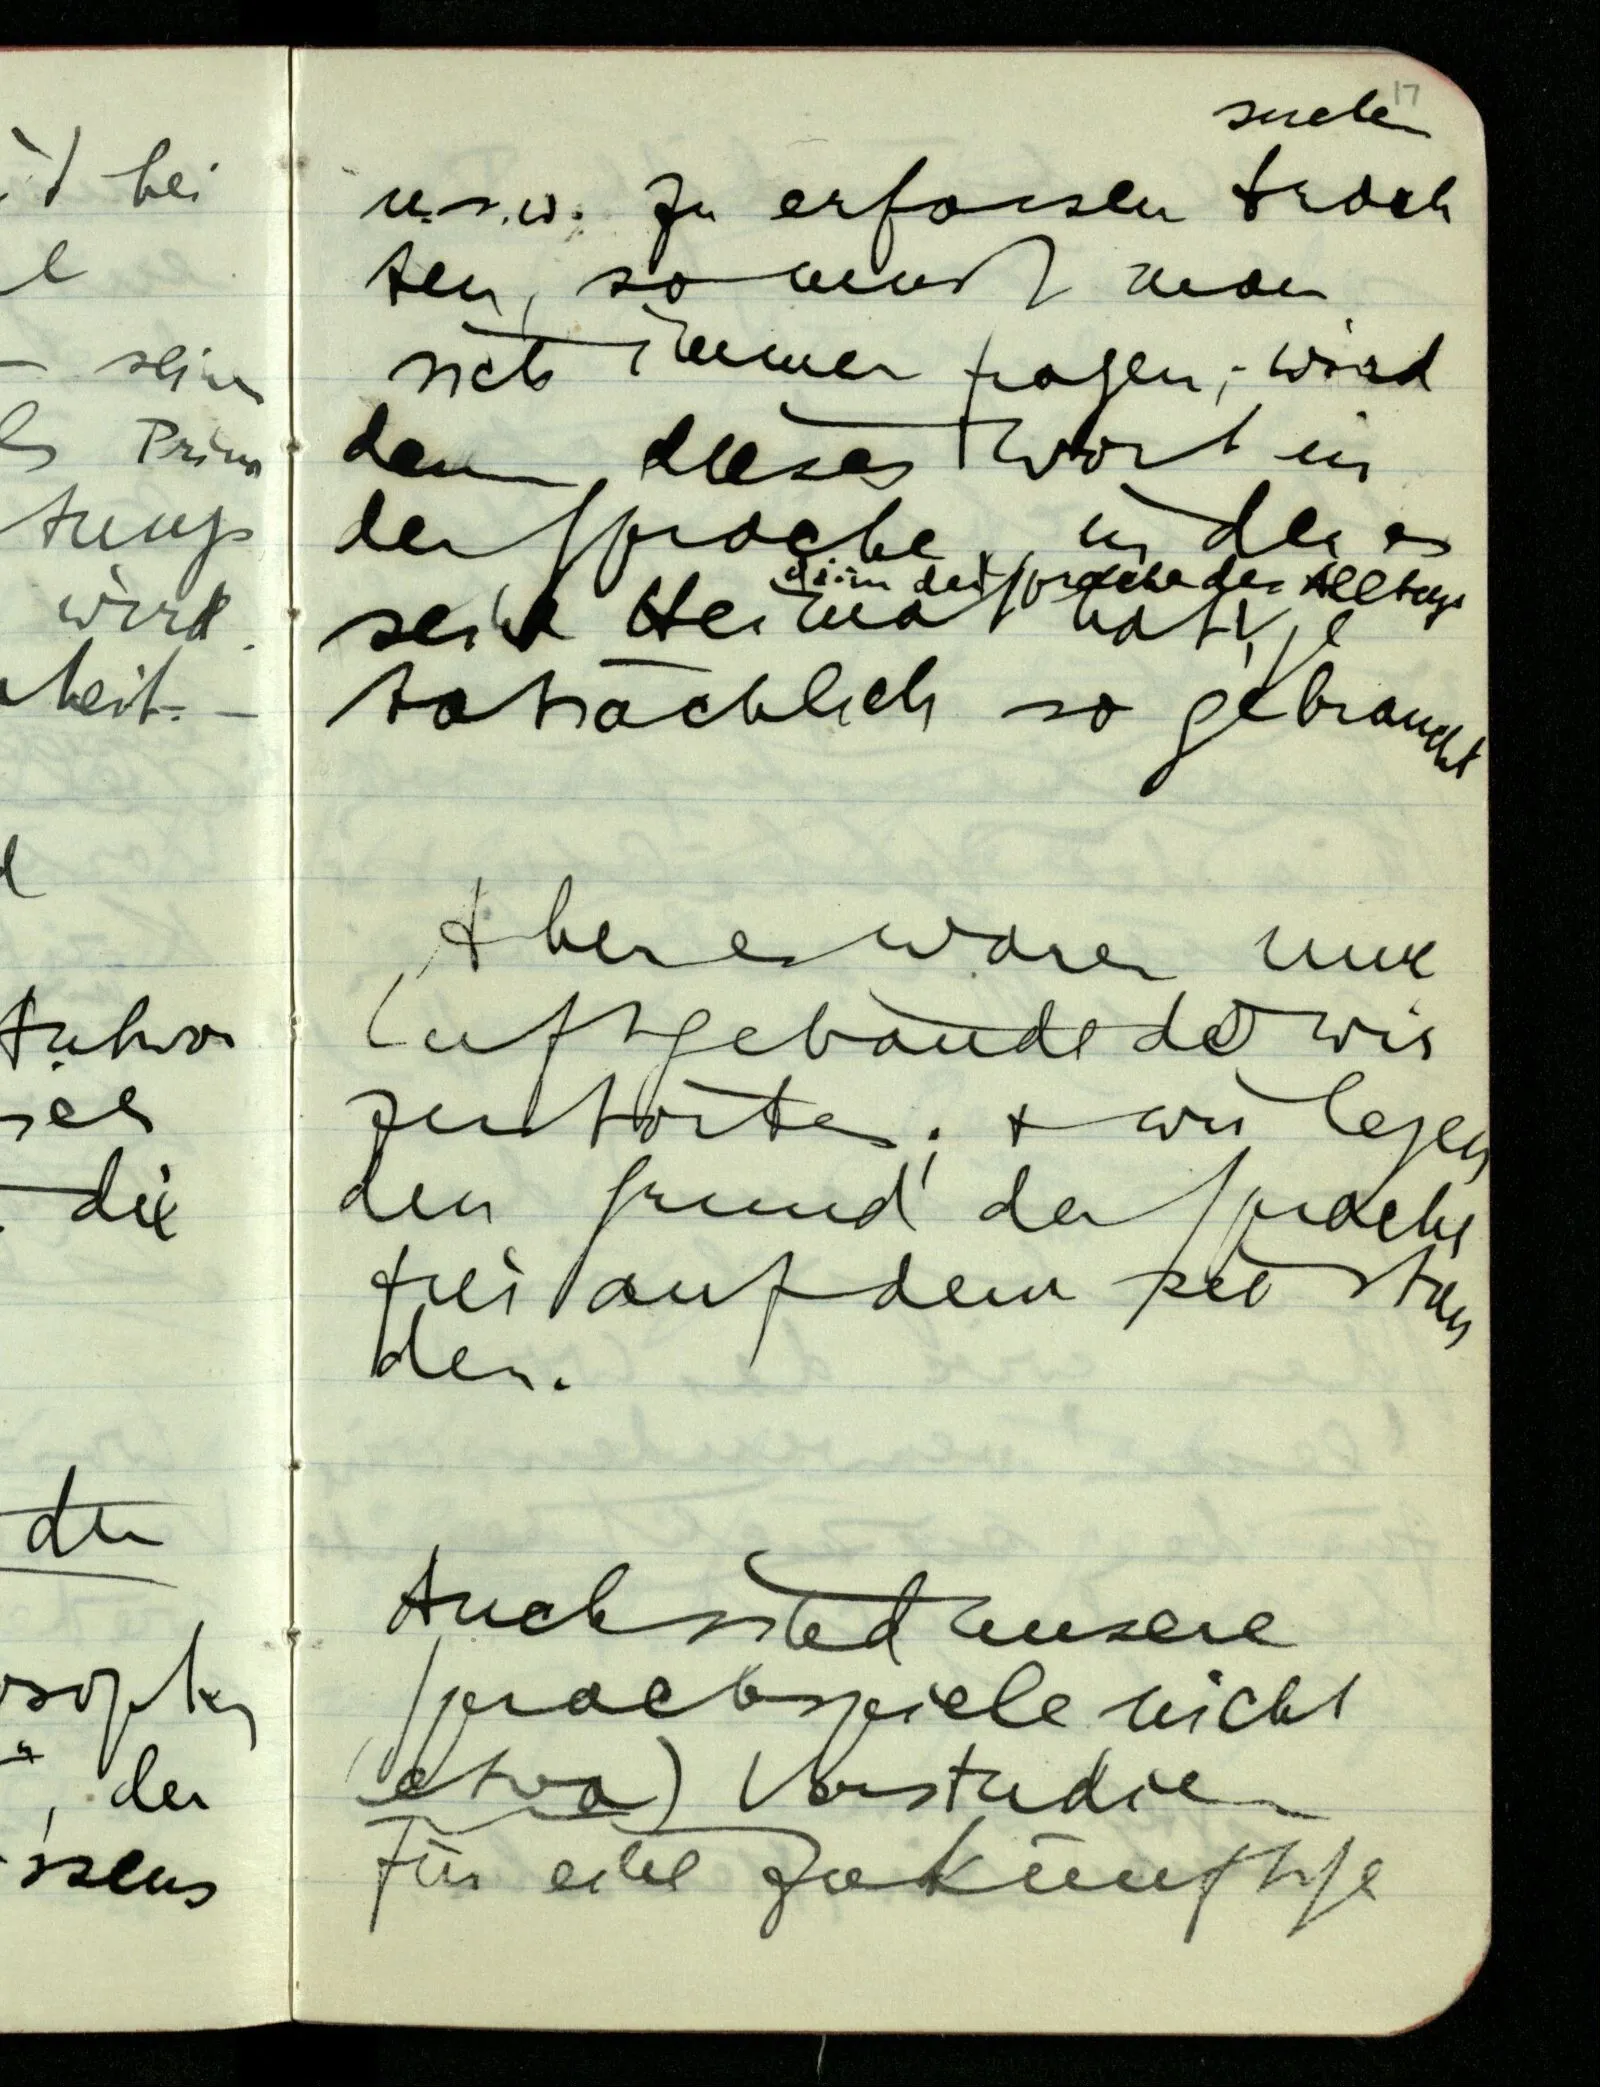 d bei
l
– seiner
ls Prin
tungs
wird.
heit. –
d
Antwo
die
den
osophen
", der
issens
17
suchen
u.s.w. zu erfassen trach
ten, so muß man
sich immer fragen; wird
denn dieses Wort in
der Sprache, in der es
d.i. in der Sprache des Alltags
seine Heimat hat, je
tatsächlich so gebraucht
Aber es waren nur
Luftgebäude die wir
zerstörten; + wir legen
den Grund der Sprache
frei auf dem sie stan
den.
Auch sind unsere
Sprachspiele nicht
(etwa) Vorstudien
für eine zukünftige